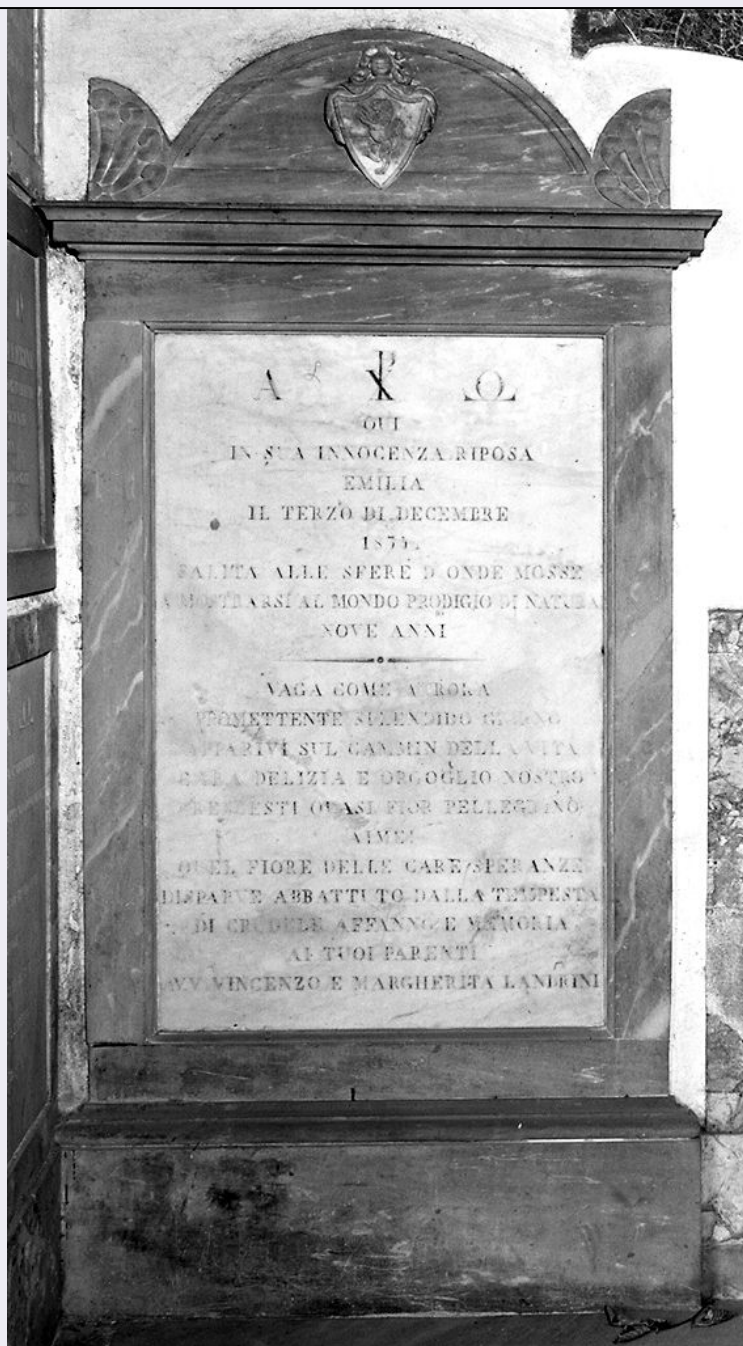 Α ☧ Ω
QUI
IN SUA INNOCENZA RIPOSA
EMILIA
IL TERZO DI DECEMBRE
SALITA ALLE SFERE D'ONDE MOSSE
A MOSTRARSI AL MONDO PRODIGIO DI NATURA
NOVE ANNI
VAGA COME AURORA
PROMETTENTE SPLENDIDO GIORNO
APPARIVI SUL CAMMIN DELLA VITA
CARA DELIZIA E ORGOGLIO NOSTRO
CRESCESTI QUASI FIOR PELLEGRINO
AIMEI
QUEL FIORE DELLE CARE SPERANZE
DISPARVE ABBATTUTO DALLA TEMPESTA
DI CRUDELE AFFANNO E MEMORIA
AI TUOI PARENTI
AVV. VINCENZO E MARGHERITA LANDRINI